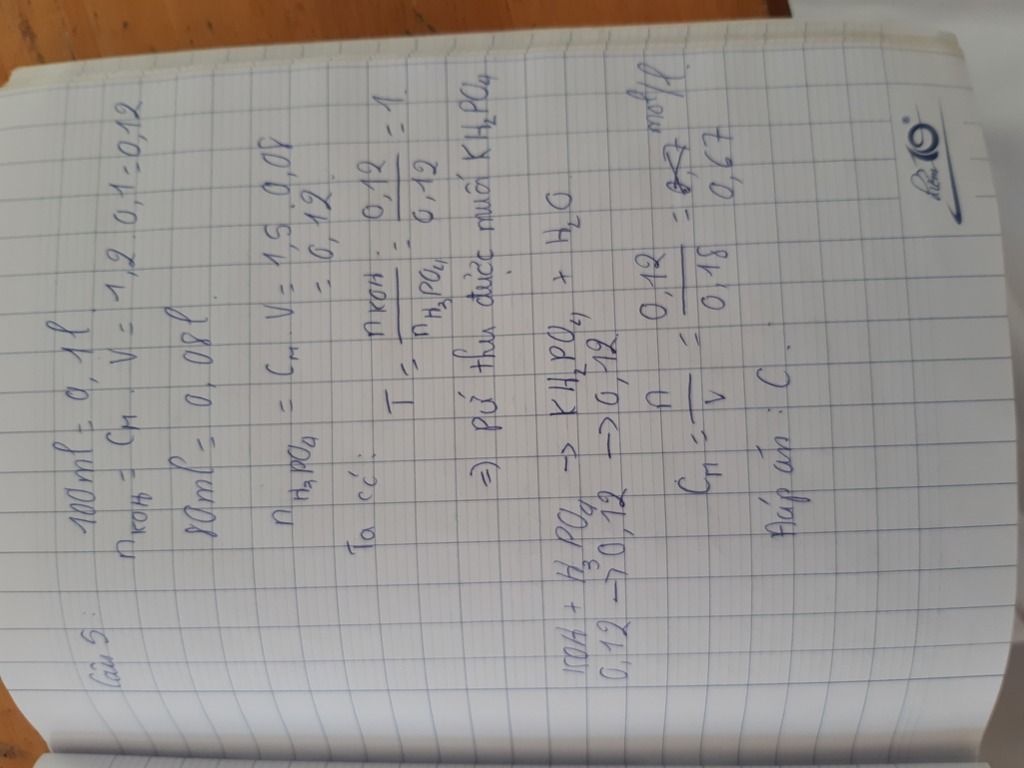 Câu 5: 100ml = 0,1l
n KOH = CM . V = 1,2 . 0,1 = 0,12
80ml = 0,08l
n H3PO4 = CM . V = 1,5 . 0,08
= 0,12
Ta có: T = n KOH / n H3PO4 = 0,12 / 0,12 = 1
=) PƯ thu được muối KH2PO4
KOH + H3PO4 -> KH2PO4 + H2O
0,12 -> 0,12 -> 0,12
CM = n / V = 0,12 / 0,18 = 0,67 mol/l
Đáp án : C .